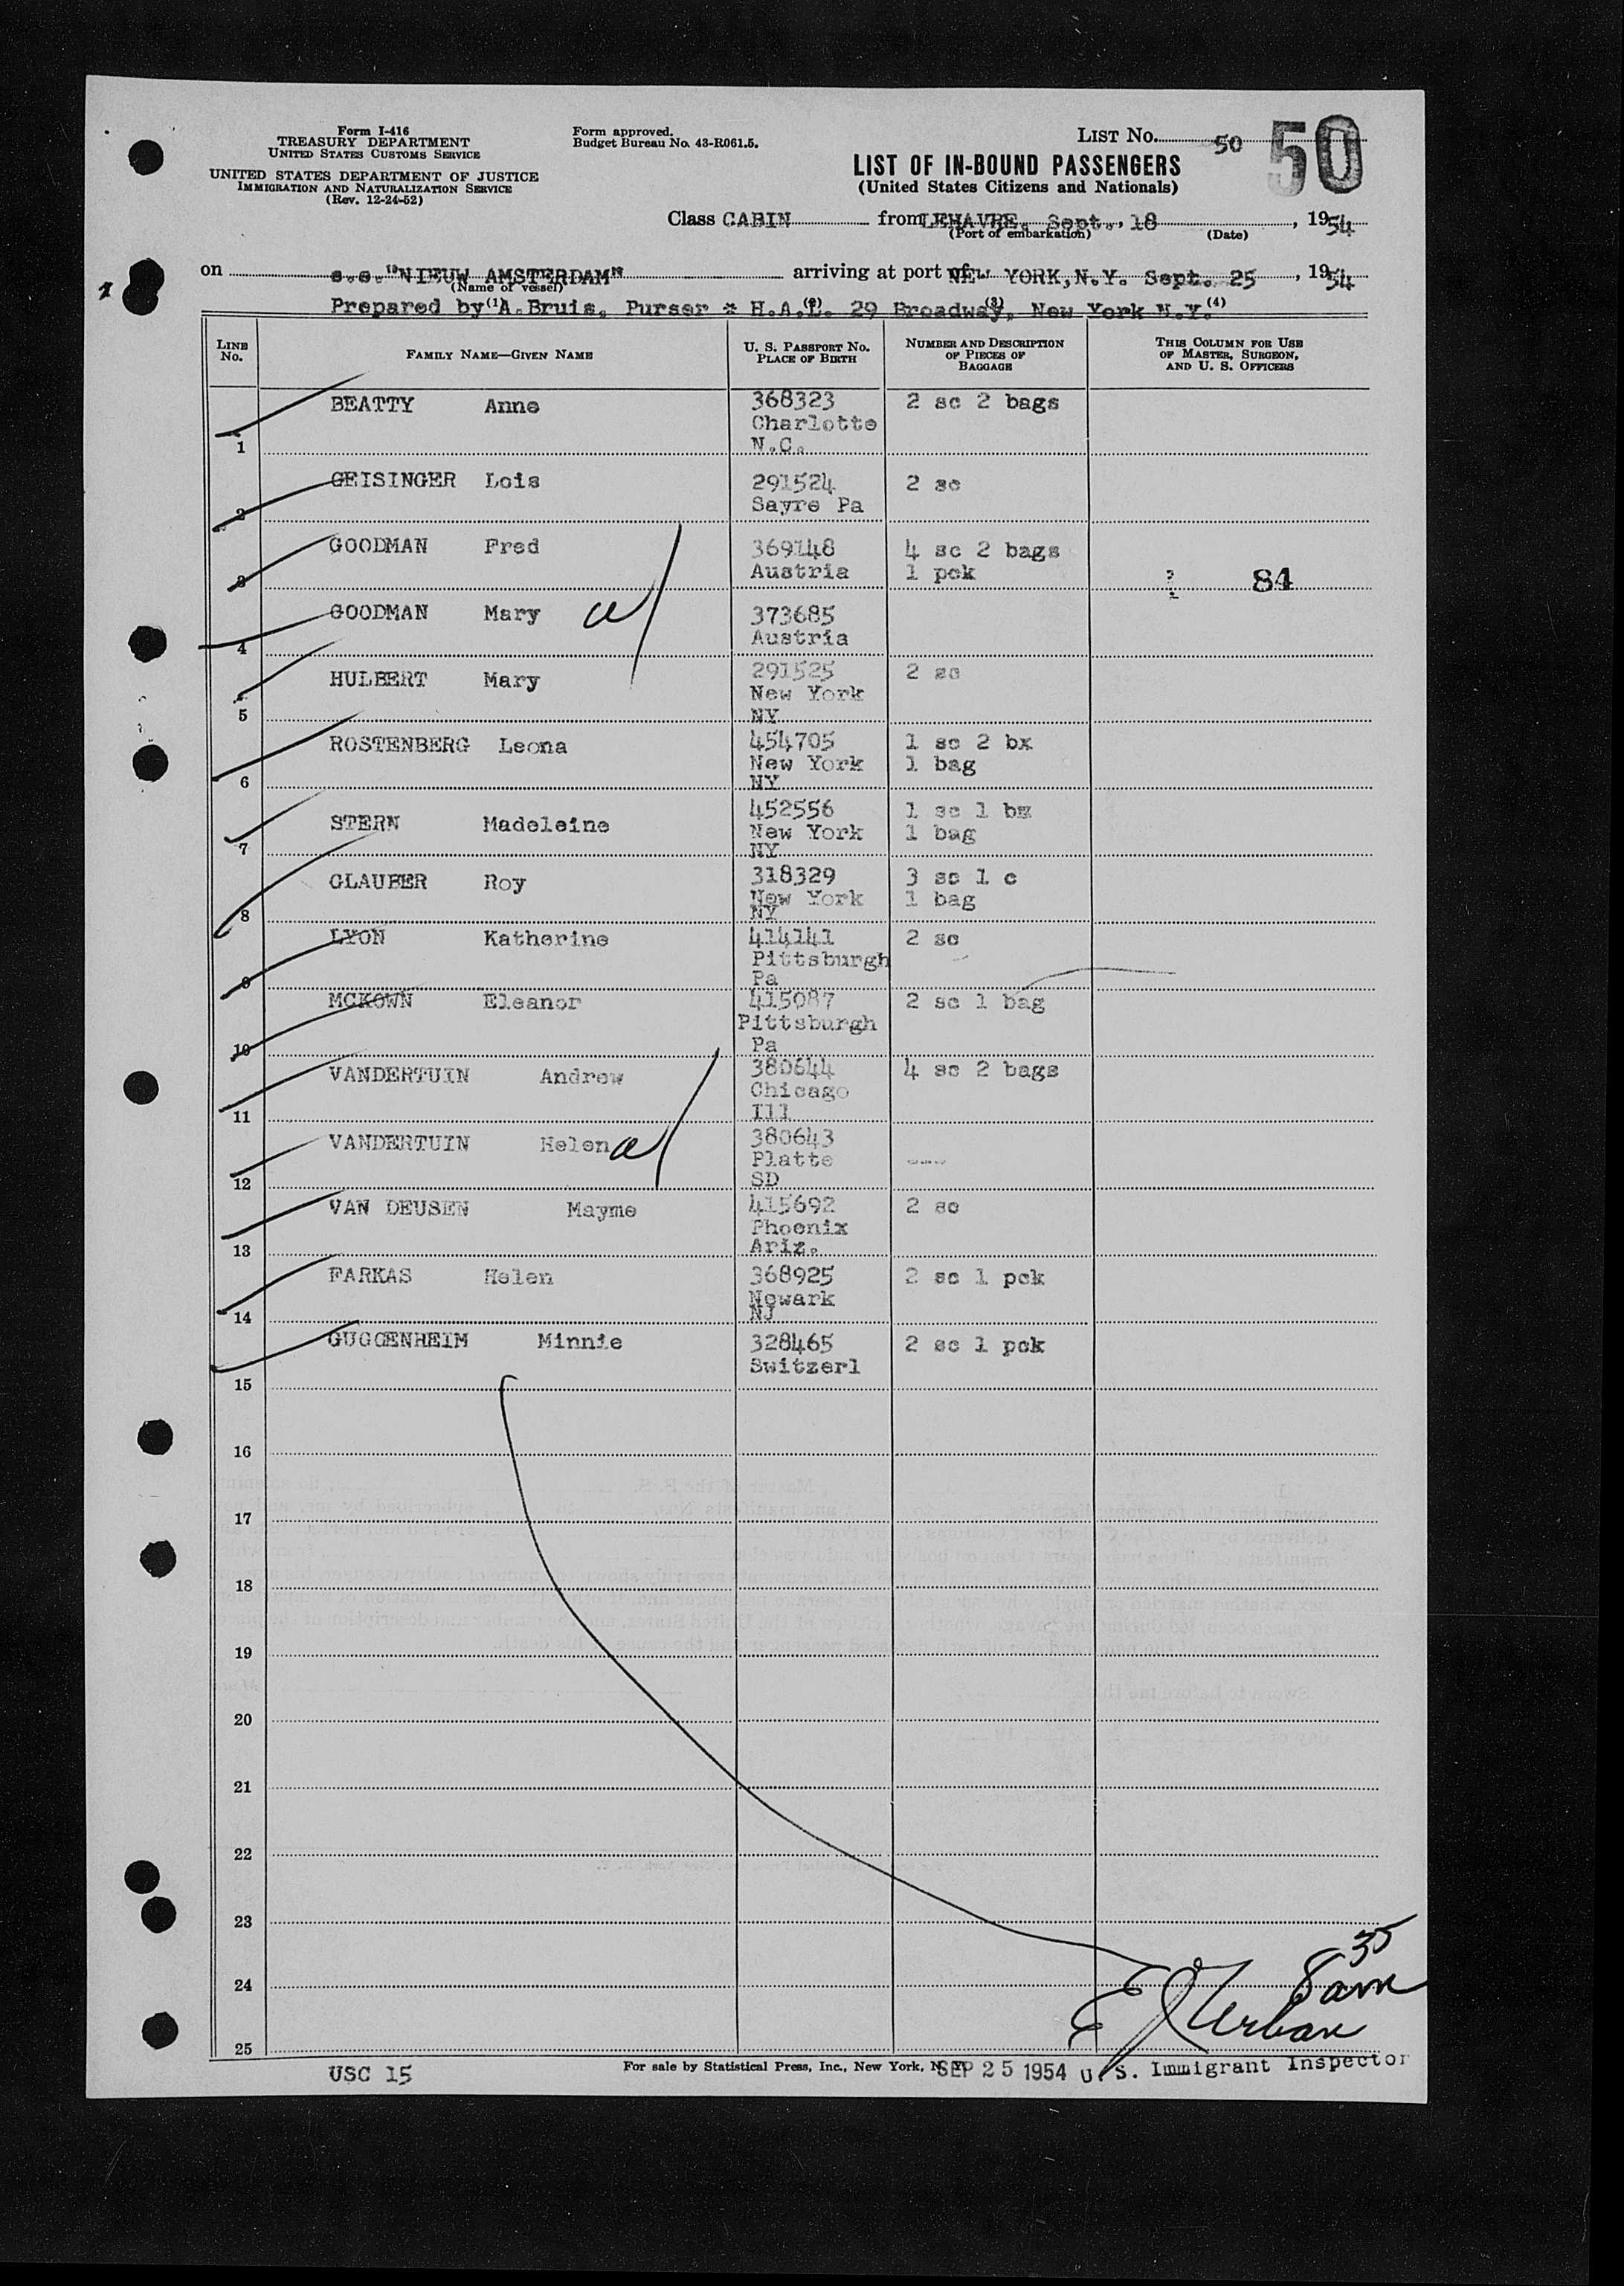 Form I-416
TREASURY DEPARTMENT
UNITED STATES CUSTOMS SERVICE
UNITED STATES DEPARTMENT OF JUSTICE
IMMIGRATION AND NATURALIZATION SERVICE
(Rev. 12-24-52)
Form approved.
Budget Bureau No. 43-R061.5.
LIST No. 50 50
LIST OF IN-BOUND PASSENGERS
(United States Citizens and Nationals)
Class CABIN from LEHAVRE, Sept., 18, 1954
(Port of embarkation) (Date)
on s.s. "NIEUW AMSTERDAM" arriving at port of NEW YORK,N.Y. Sept. 25, 1954
(Name of vessel)
Prepared by (1) A.Bruis, Purser * H.A.L. (2) 29 Broadway, (3) New York N.Y. (4)
LINE No. FAMILY NAME—GIVEN NAME U. S. PASSPORT NO. PLACE OF BIRTH NUMBER AND DESCRIPTION OF PIECES OF BAGGAGE THIS COLUMN FOR USE OF MASTER, SURGEON, AND U. S. OFFICERS
1 BEATTY Anne 368323 2 sc 2 bags
Charlotte
N.C.
2 GEISINGER Lois 291524 2 sc
Sayre Pa
3 GOODMAN Fred 369148 4 sc 2 bags
Austria 1 pck 84
4 GOODMAN Mary 373685
Austria
5 HULBERT Mary 291525 2 sc
New York
NY
6 ROSTENBERG Leona 454705 1 sc 2 bx
New York 1 bag
NY
7 STERN Madeleine 452556 1 sc 1 bx
New York 1 bag
NY
8 GLAUBER Roy 318329 3 sc 1 c
New York 1 bag
NY
9 LYON Katherine 414141 2 sc
Pittsburgh
Pa
10 MCKOWN Eleanor 415087 2 sc 1 bag
Pittsburgh
Pa
11 VANDERTUIN Andrew 380644 4 sc 2 bags
Chicago
Ill
12 VANDERTUIN Helen 380643 ---
Platte
SD
13 VAN DEUSEN Mayme 415692 2 sc
Phoenix
Ariz.
14 FARKAS Helen 368925 2 sc 1 pck
Newark
NJ
15 GUGGENHEIM Minnie 328465 2 sc 1 pck
Switzerl
16
17
18
19
20
21
22
23
24
25
8 35 am
E J Urban
USC 15
For sale by Statistical Press, Inc., New York, N. Y.
SEP 25 1954 U. S. Immigrant Inspector